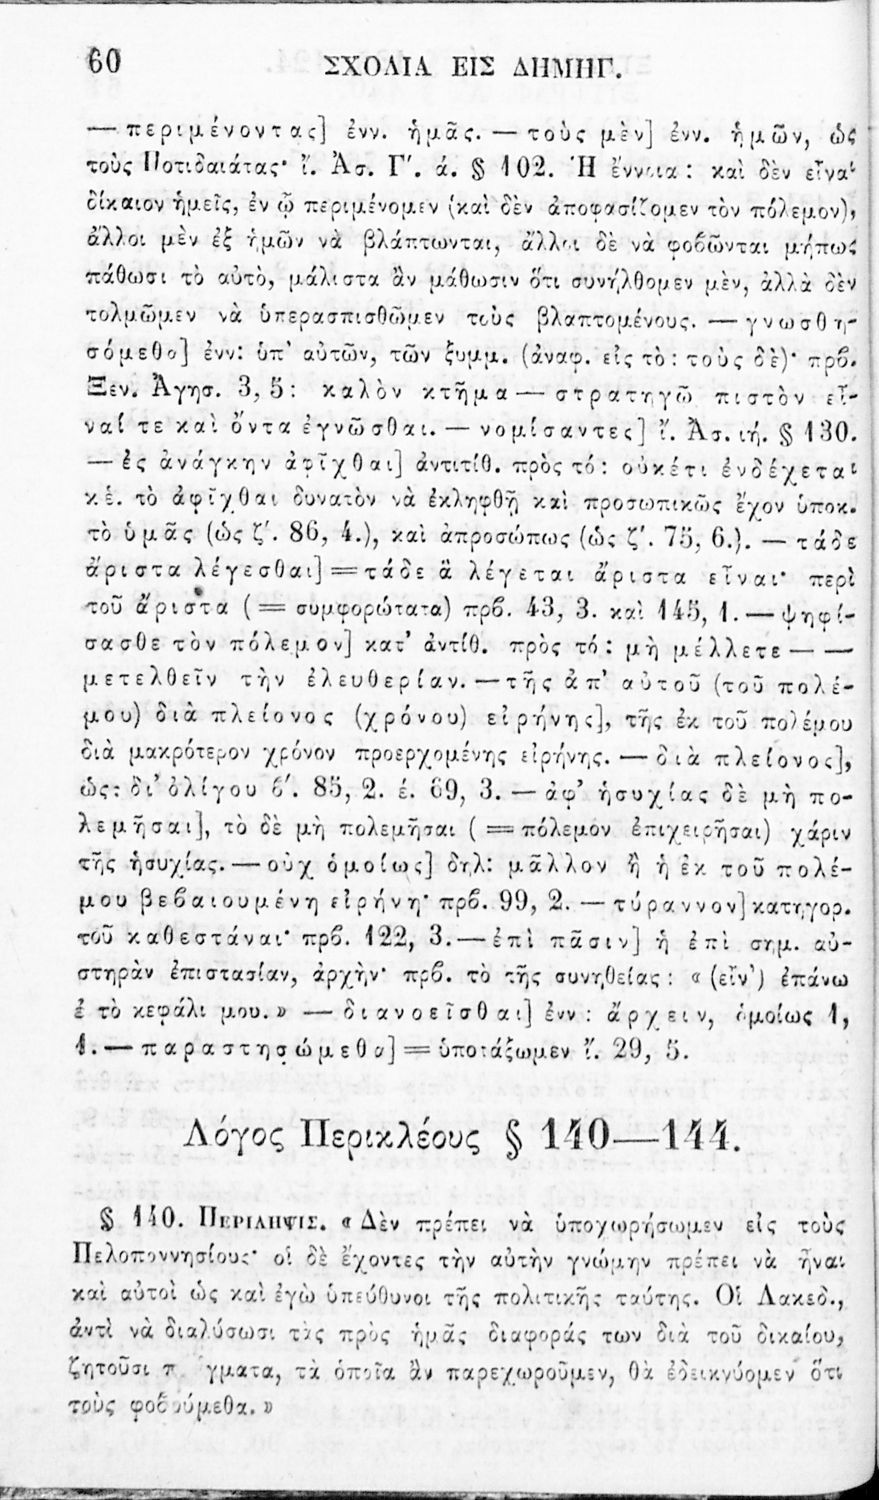 60 ΣΧΟΛΙΑ ΕΙΣ ΔΗΜΗΓ.
— περιμένοντας] ἐνν. ἡμᾶς. — τοὺς μὲν] ἐνν. ἡμῶν, ὡς
τοὺς Ποτιδαιάτας· ἴ. Ἀσ. Γ'. ά. § 102. Ἡ ἔννοια: καὶ δὲν εἶναι
δίκαιον ἡμεῖς, ἐν ᾧ περιμένομεν (καὶ δὲν ἀποφασίζομεν τὸν πόλεμον),
ἄλλοι μὲν ἐξ ἡμῶν νὰ βλάπτωνται, ἄλλοι δὲ νὰ φοβῶνται μήπως
πάθωσι τὸ αὐτὸ, μάλιστα ἂν μάθωσιν ὅτι συνήλθομεν μὲν, ἀλλὰ δὲν
τολμῶμεν νὰ ὑπερασπισθῶμεν τοὺς βλαπτομένους. — γνωσθη-
σόμεθα] ἐνν: ὑπ' αὐτῶν, τῶν ξυμμ. (ἀναφ. εἰς τὸ: τοὺς δὲ)· πρβ.
Ξεν. Ἀγησ. 3, 5: καλὸν κτῆμα — στρατηγῷ πιστὸν εἶ-
ναί τε καὶ ὄντα ἐγνῶσθαι. — νομίσαντες] ἴ. Ἀσ. ιή. § 130.
— ἐς ἀνάγκην ἀφῖχθαι] ἀντιτίθ. πρὸς τό: οὐκέτι ἐνδέχεται
κἑ. τὸ ἀφῖχθαι δυνατὸν νὰ ἐκληφθῇ καὶ προσωπικῶς ἔχον ὑποκ.
τὸ ὑμᾶς (ὡς ζ'. 86, 4.), καὶ ἀπροσώπως (ὡς ζ'. 75, 6.). — τάδε
ἄριστα λέγεσθαι] = τάδε ἃ λέγεται ἄριστα εἶναι· περὶ
τοῦ ἄριστα (= συμφορώτατα) πρβ. 43, 3. καὶ 145, 1. — ψηφί-
σασθε τὸν πόλεμον] κατ' ἀντίθ. πρὸς τό: μὴ μέλλετε — —
μετελθεῖν τὴν ἐλευθερίαν. — τῆς ἀπ' αὐτοῦ (τοῦ πολέ-
μου) διὰ πλείονος (χρόνου) εἰρήνης], τῆς ἐκ τοῦ πολέμου
διὰ μακρότερον χρόνον προερχομένης εἰρήνης. — διὰ πλείονος],
ὡς: δι' ὀλίγου β'. 85, 2. έ. 69, 3. — ἀφ' ἡσυχίας δὲ μὴ πο-
λεμῆσαι], τὸ δὲ μὴ πολεμῆσαι (= πόλεμον ἐπιχειρῆσαι) χάριν
τῆς ἡσυχίας. — οὐχ ὁμοίως] δηλ: μᾶλλον ἢ ἡ ἐκ τοῦ πολέ-
μου βεβαιουμένη εἰρήνη· πρβ. 99, 2. — τύραννον] κατηγορ.
τοῦ καθεστάναι· πρβ. 122, 3. — ἐπὶ πᾶσιν] ἡ ἐπὶ σημ. αὐ-
στηρὰν ἐπιστασίαν, ἀρχὴν· πρβ. τὸ τῆς συνηθείας: « (εἶν') ἐπάνω
ἐ τὸ κεφάλι μου. » — διανοεῖσθαι] ἐνν: ἄρχειν, ὁμοίως 1,
1. — παραστησώμεθα] = ὑποτάξωμεν ἴ. 29, 5.
Λόγος Περικλέους § 140—144.
§ 140. ΠΕΡΙΛΗΨΙΣ. « Δὲν πρέπει νὰ ὑποχωρήσωμεν εἰς τοὺς
Πελοποννησίους· οἱ δὲ ἔχοντες τὴν αὐτὴν γνώμην πρέπει νὰ ἦναι
καὶ αὐτοὶ ὡς καὶ ἐγὼ ὑπεύθυνοι τῆς πολιτικῆς ταύτης. Οἱ Λακεδ.,
ἀντὶ νὰ διαλύσωσι τὰς πρὸς ἡμᾶς διαφοράς των διὰ τοῦ δικαίου,
ζητοῦσι π γματα, τὰ ὁποῖα ἂν παρεχωροῦμεν, θὰ ἐδεικνύομεν ὅτι
τοὺς φοβούμεθα. »